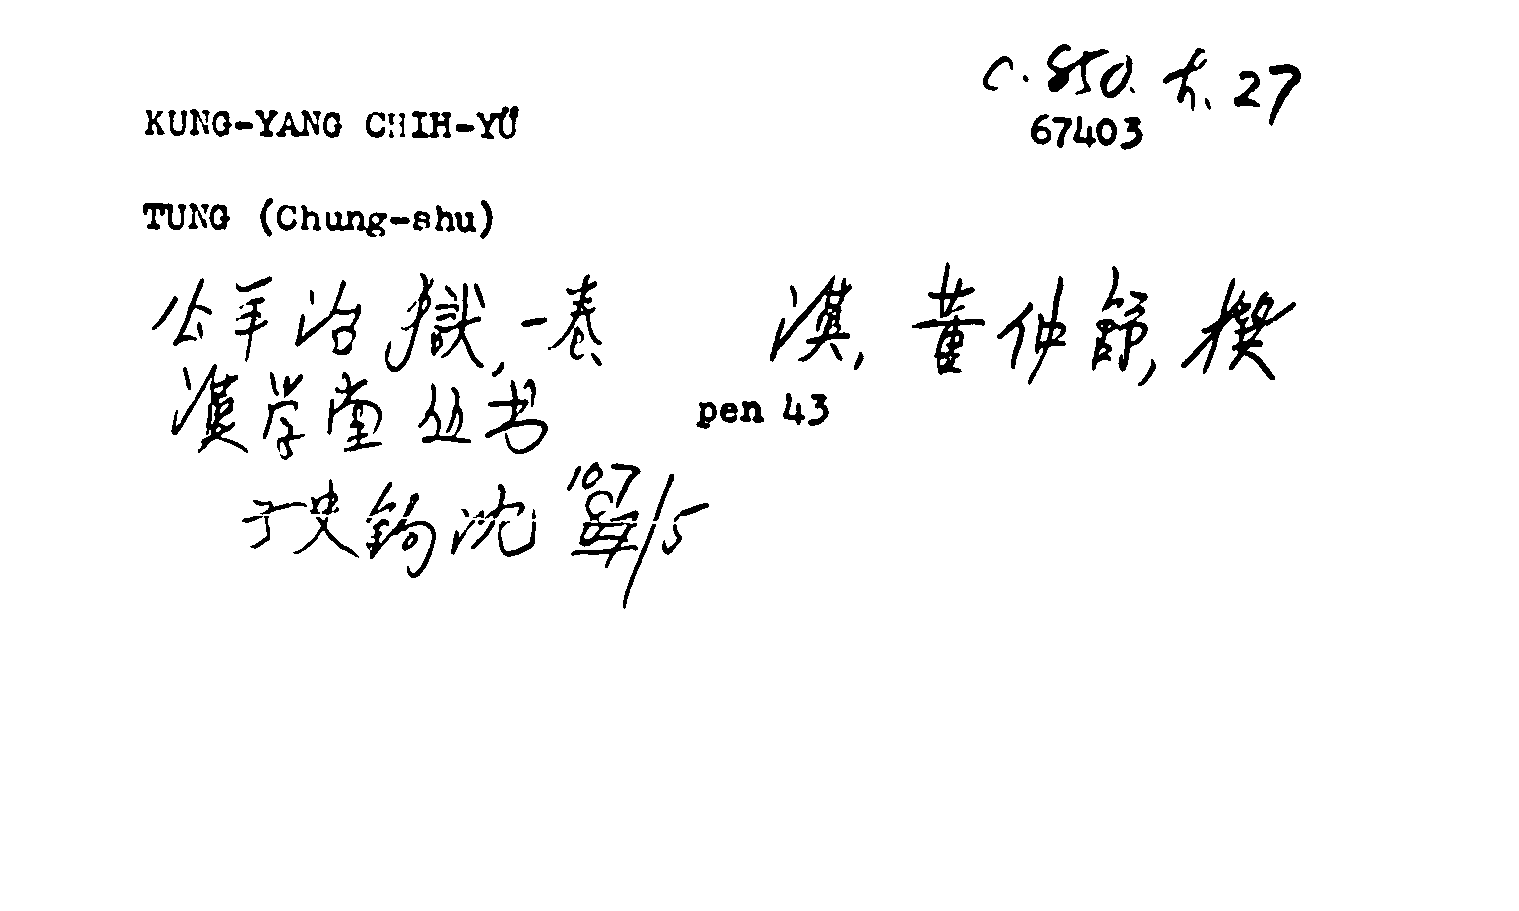 C. 850. t. 27
67403
KUNG-YANG CHIH-YÜ
TUNG (Chung-shu)
公羊治獄, 一卷 漢, 董仲舒, 撰
漢学堂丛书 pen 43
子史鈎沈 107/5